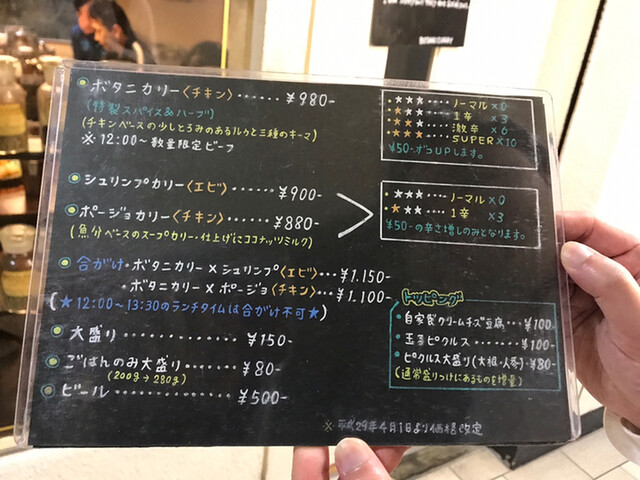 ボタニカリー〈チキン〉······¥980-
(特製スパイス&ハーブ)
(チキンベースの少しとろみのあるルゥと三種のキーマ)
※12:00~数量限定ビーフ
シュリンプカリー〈エビ〉··¥900-
ポージョカリー〈チキン〉···¥880-
(魚介ベースのスープカリー・仕上げにココナッツミルク)
合がけ・ボタニカリー×シュリンプ〈エビ〉···¥1.150-
・ボタニカリー×ポージョ〈チキン〉···¥1.100-
(★12:00~13:30のランチタイムは合がけ不可★)
大盛り··········¥150-
ごはんのみ大盛り·······¥80-
(200g→280g)
ビール············¥500-
・★★★····ノーマル×0
・★★★····1辛×3
・★★★····激辛×6
・★★★····SUPER×10
¥50-ずつUPします。
・★★★····ノーマル×0
・★★★····1辛×3
¥50-の辛さ増しのみとなります。
トッピング
・自家製クリームチーズ豆腐···¥100-
・玉子ピクルス·····¥100-
・ピクルス大盛り(大根・人参)·¥80-
(通常盛りつけにあるものを増量)
※平成29年4月1日より価格改定